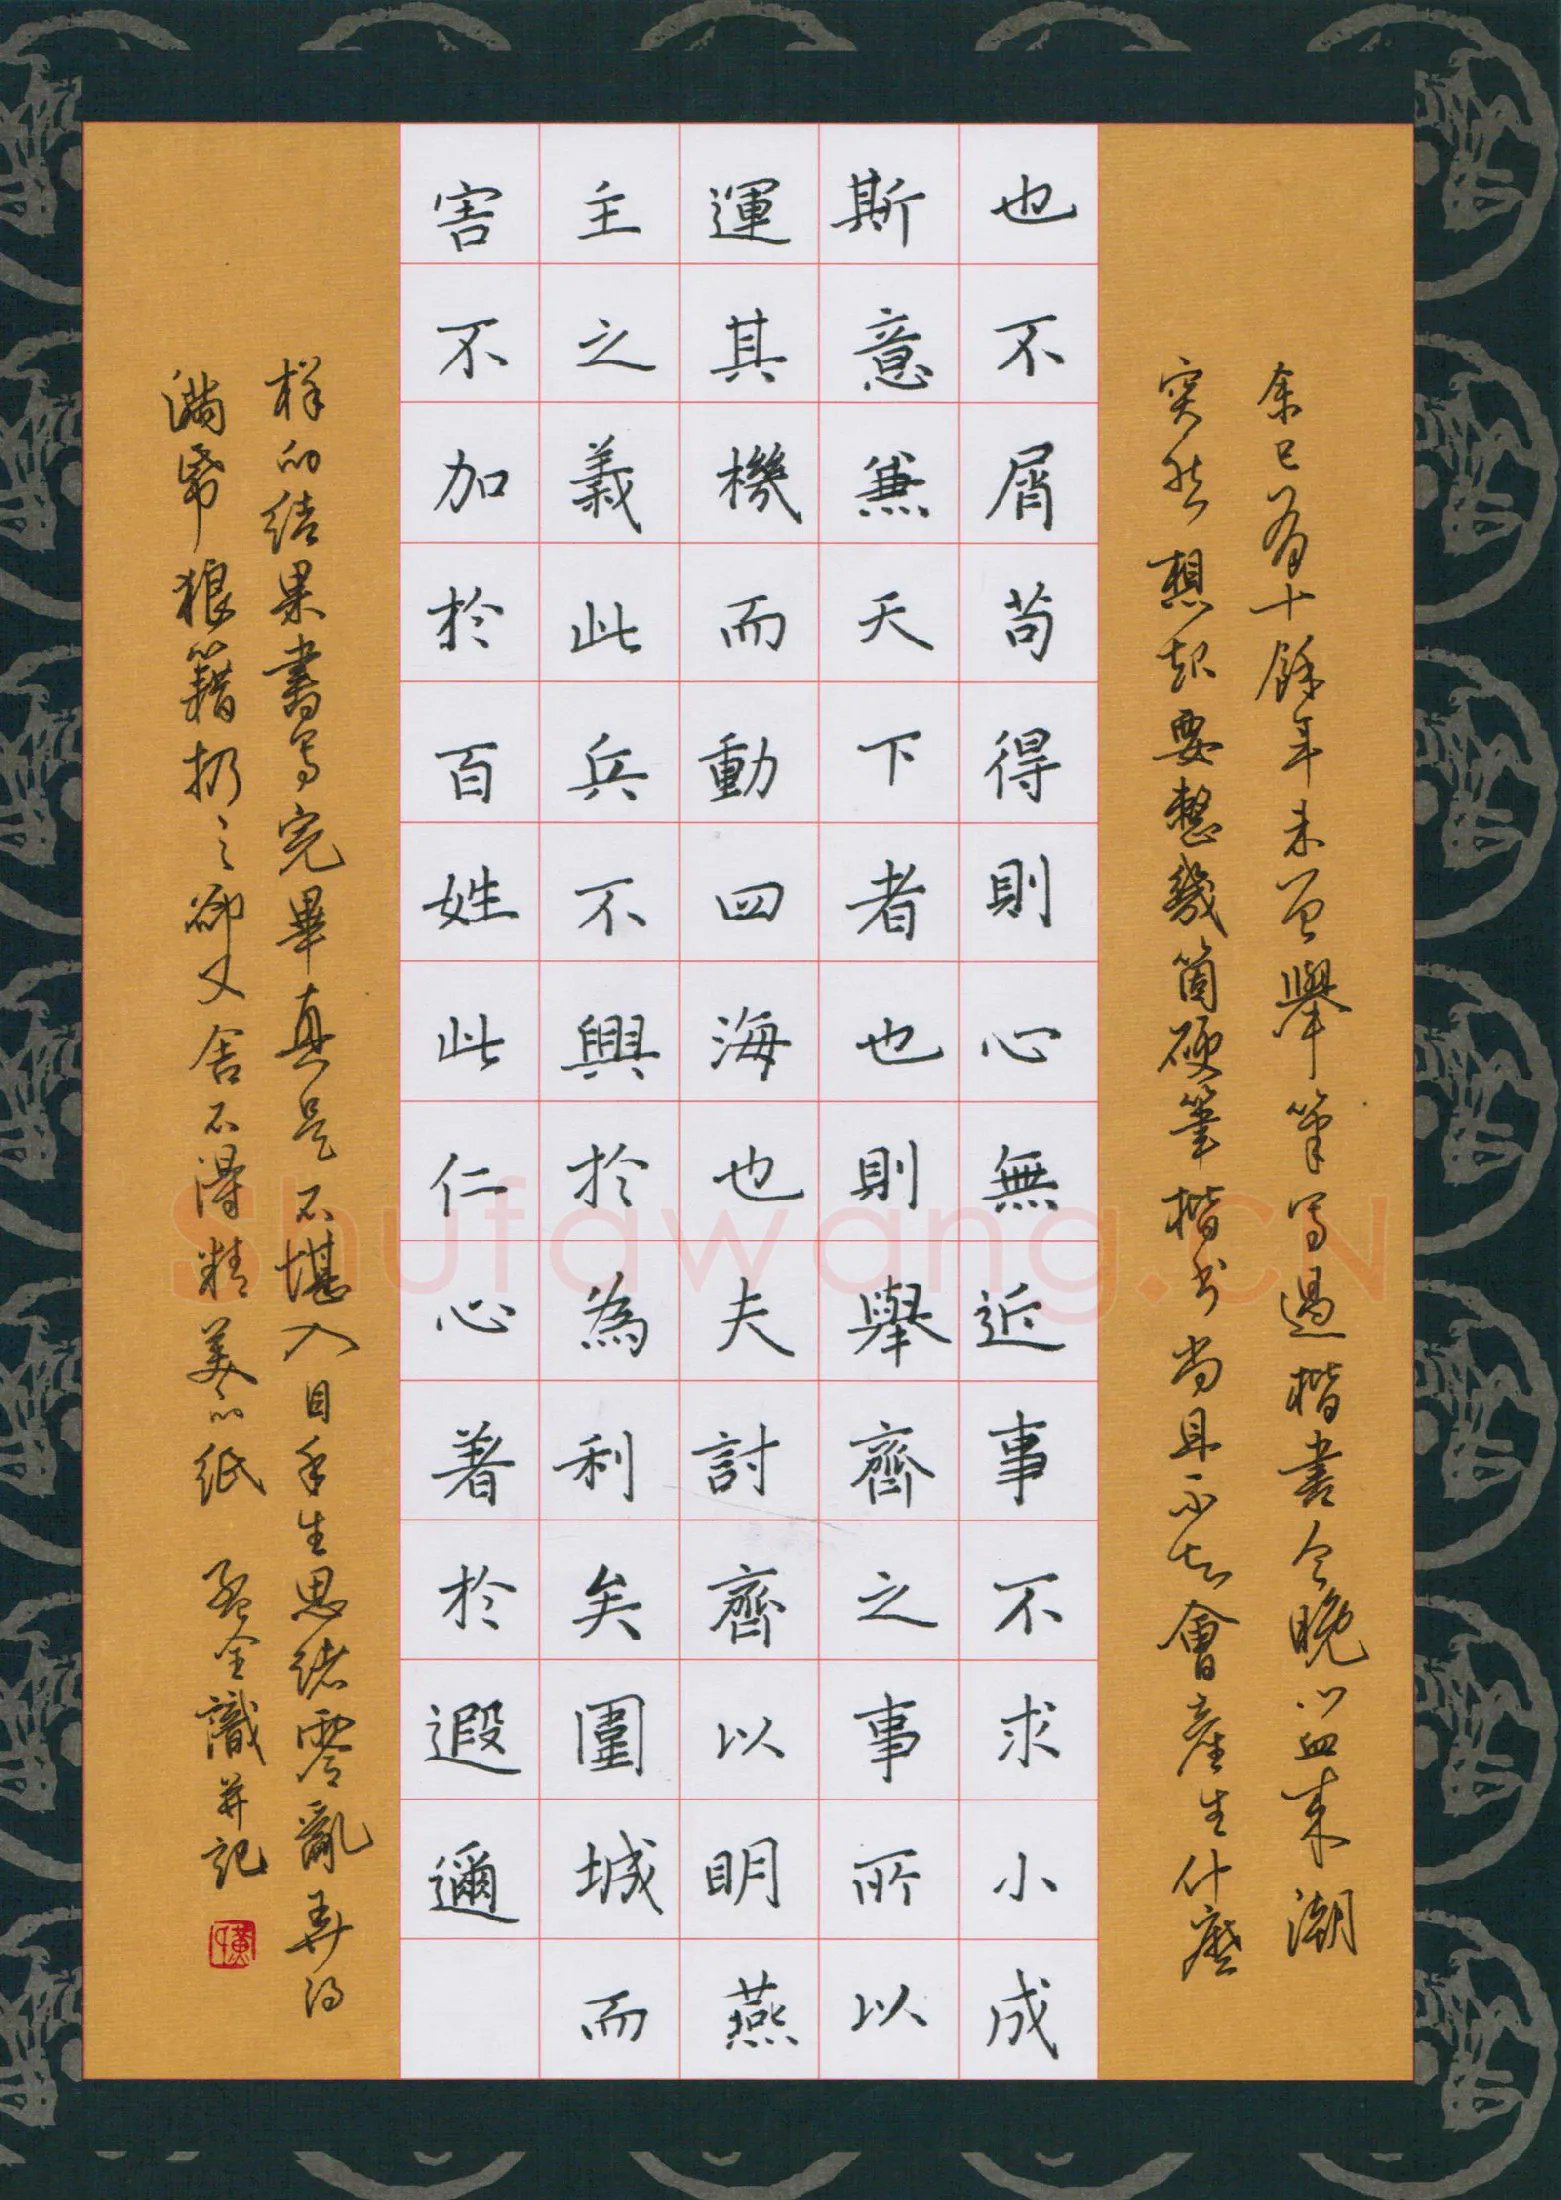 余已有十餘年未曾舉筆寫過楷書今晚心血来潮
突然想起要整幾箇硬筆楷书尚且不知會產生什麼
也不屑苟得則心無近事不求小成
斯意兼天下者也則舉齊之事所以
運其機而動四海也夫討齊以明燕
主之義此兵不興於為利矣圍城而
害不加於百姓此仁心著於遐邇
样的结果書写完畢真是不堪入目手生思绪零亂弄的
满帋狼籍扔之卻又舍不得精美的纸 孟全識并記
Shufawang.CN